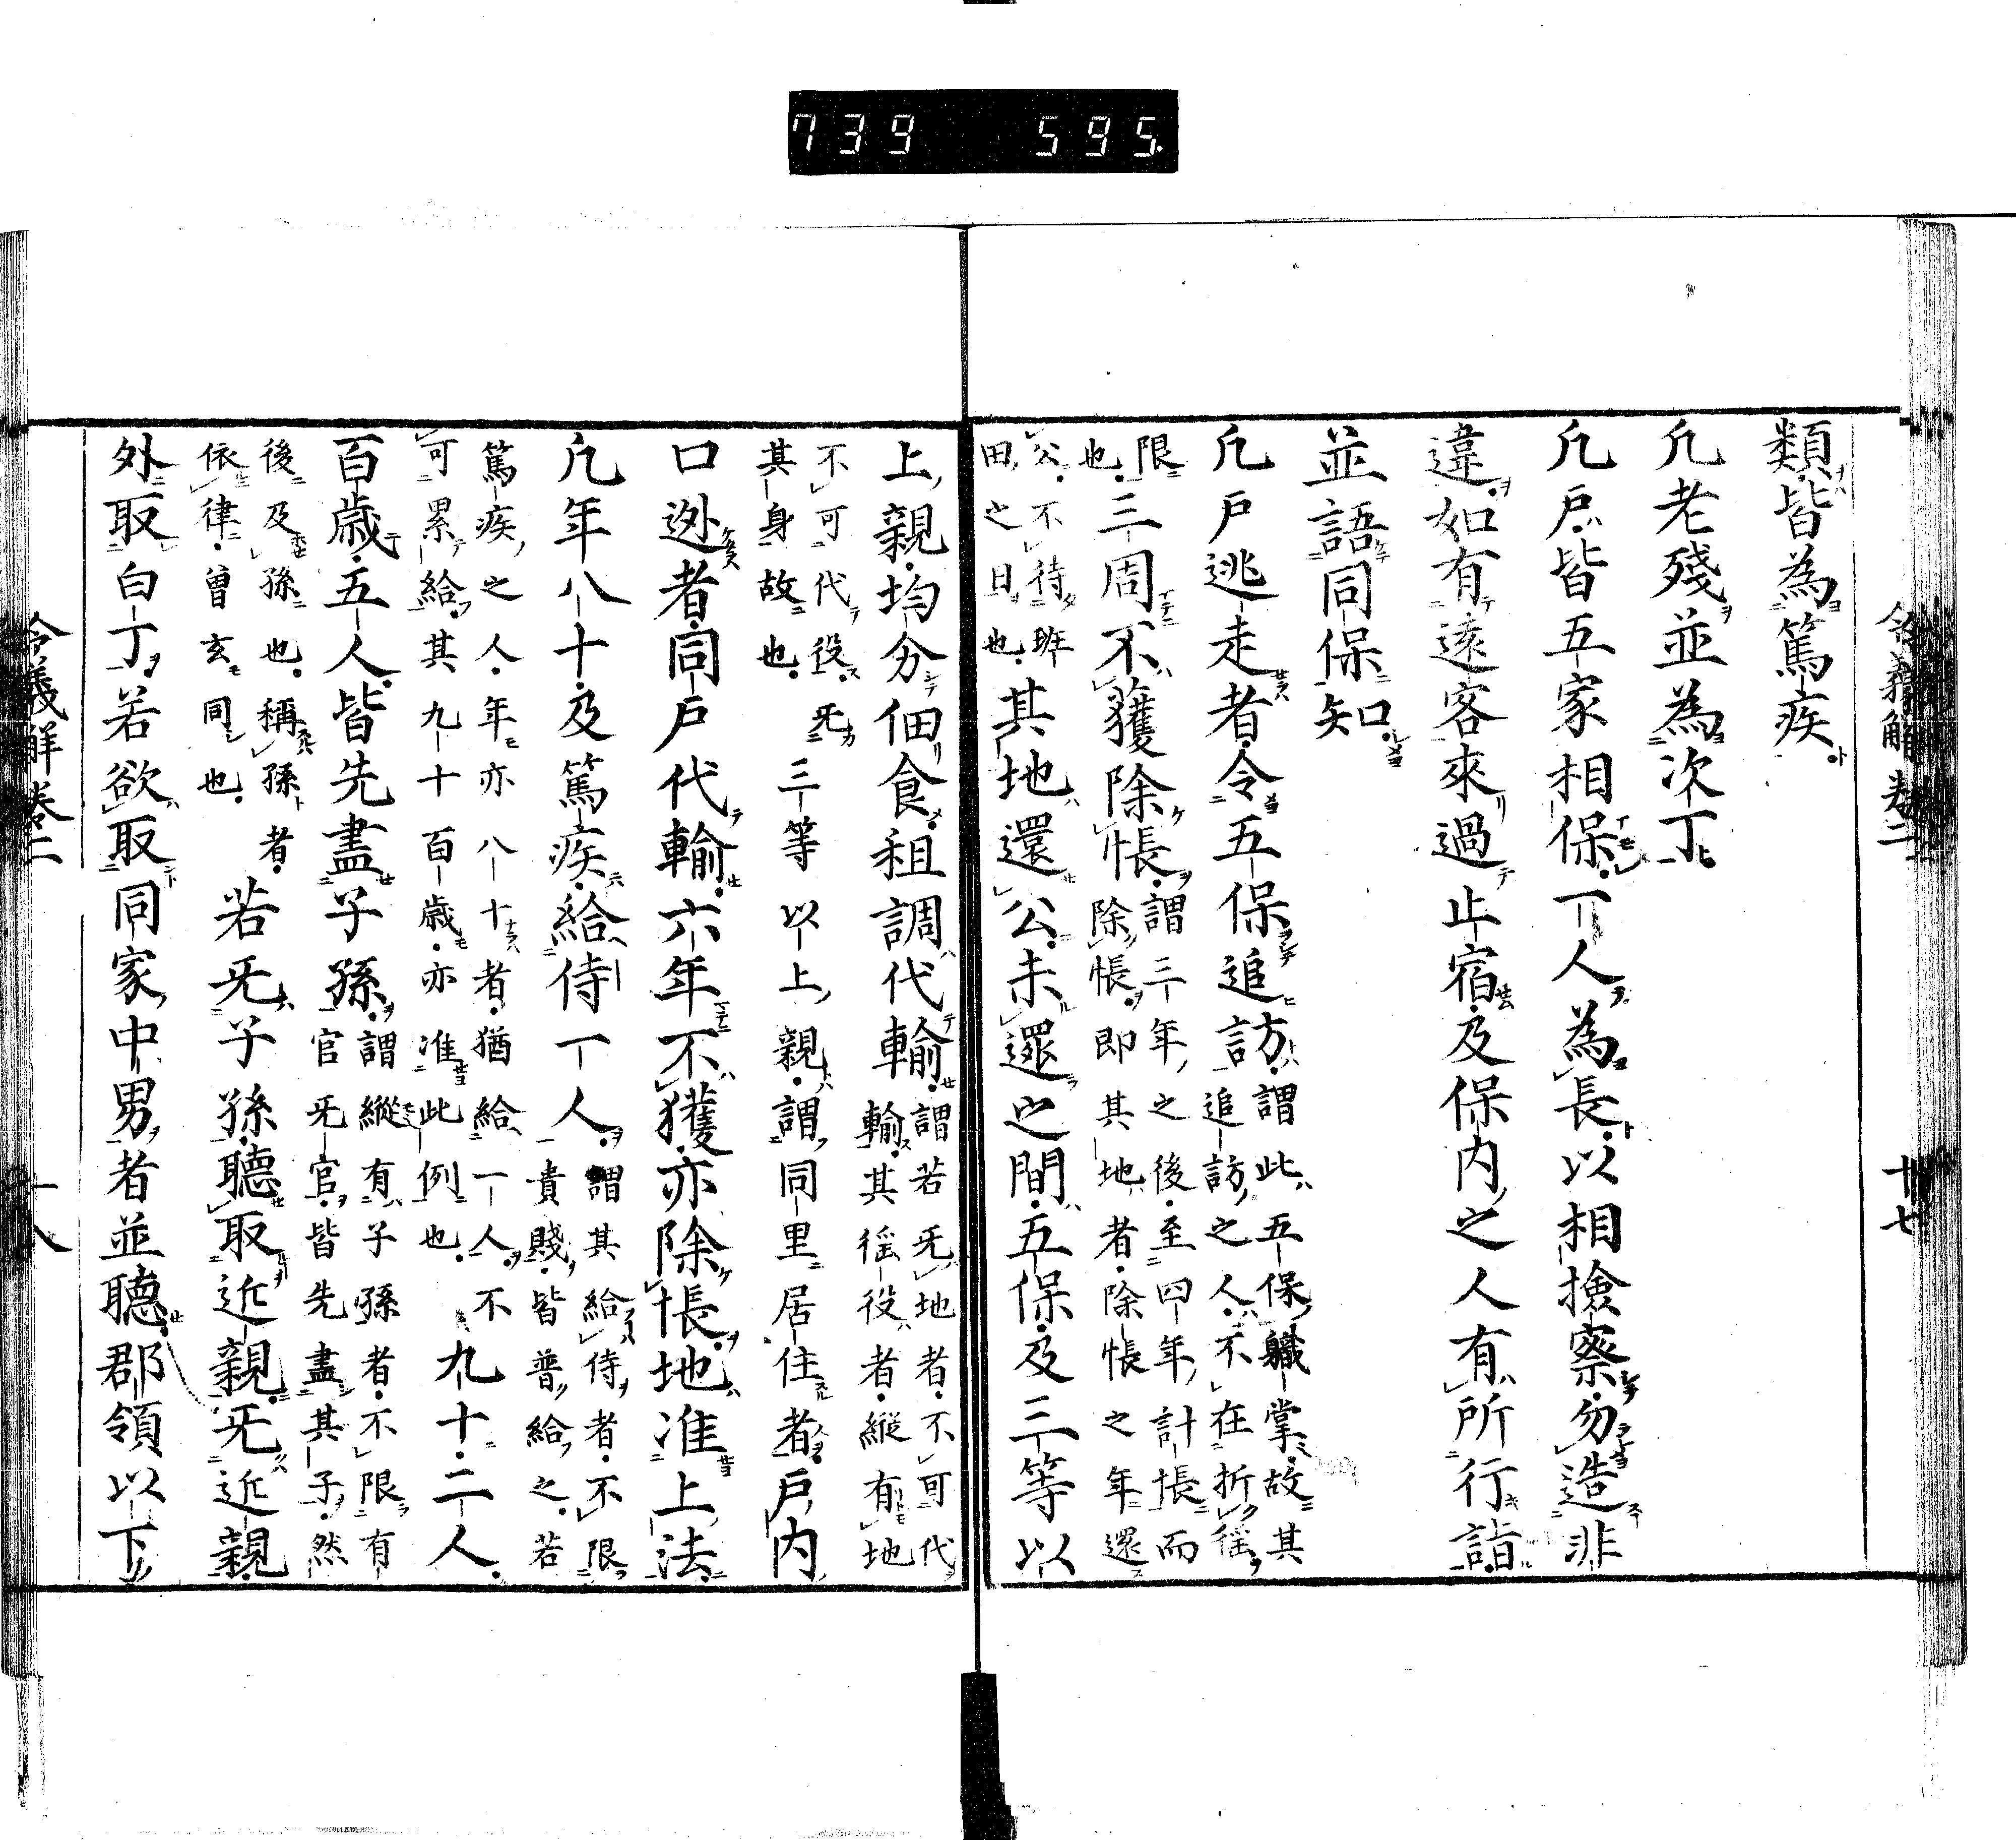 739 595.
令義解巻二 廿七
類皆為篤疾
凢老殘並為次丁
凢戸皆五家相保一人為長以相撿察勿造非
違如有遠客來過止宿及保内之人有所行詣
並語同保知
凢戸逃走者令五保追訪謂此五保職掌故其
追訪之人不在折徭
限
也三周不獲除帳謂三年之後至四年計帳而
除帳即其地者除帳之年還
公不待班
田之日也其地還公未還之間五保及三等以
上親均分佃食租調代輸謂若无地者不可代
輸其徭役者縦有地
不可代役无
其身故也三等以上親謂同里居住者戸内
口迯者同戸代輸六年不獲亦除帳地准上法
凢年八十及篤疾給侍一人謂其給侍者不限
貴賤皆普給之若
篤疾之人年亦八十者猶給一人不
可累給其九十百歳亦准此例也九十二人
百歳五人皆先盡子孫謂縦有子孫者不限有
官无官皆先盡其子然
後及孫也稱孫者
依律曽玄同也若无子孫聽取近親无近親
外取白丁若欲取同家中男者並聽郡領以下
令義解巻二